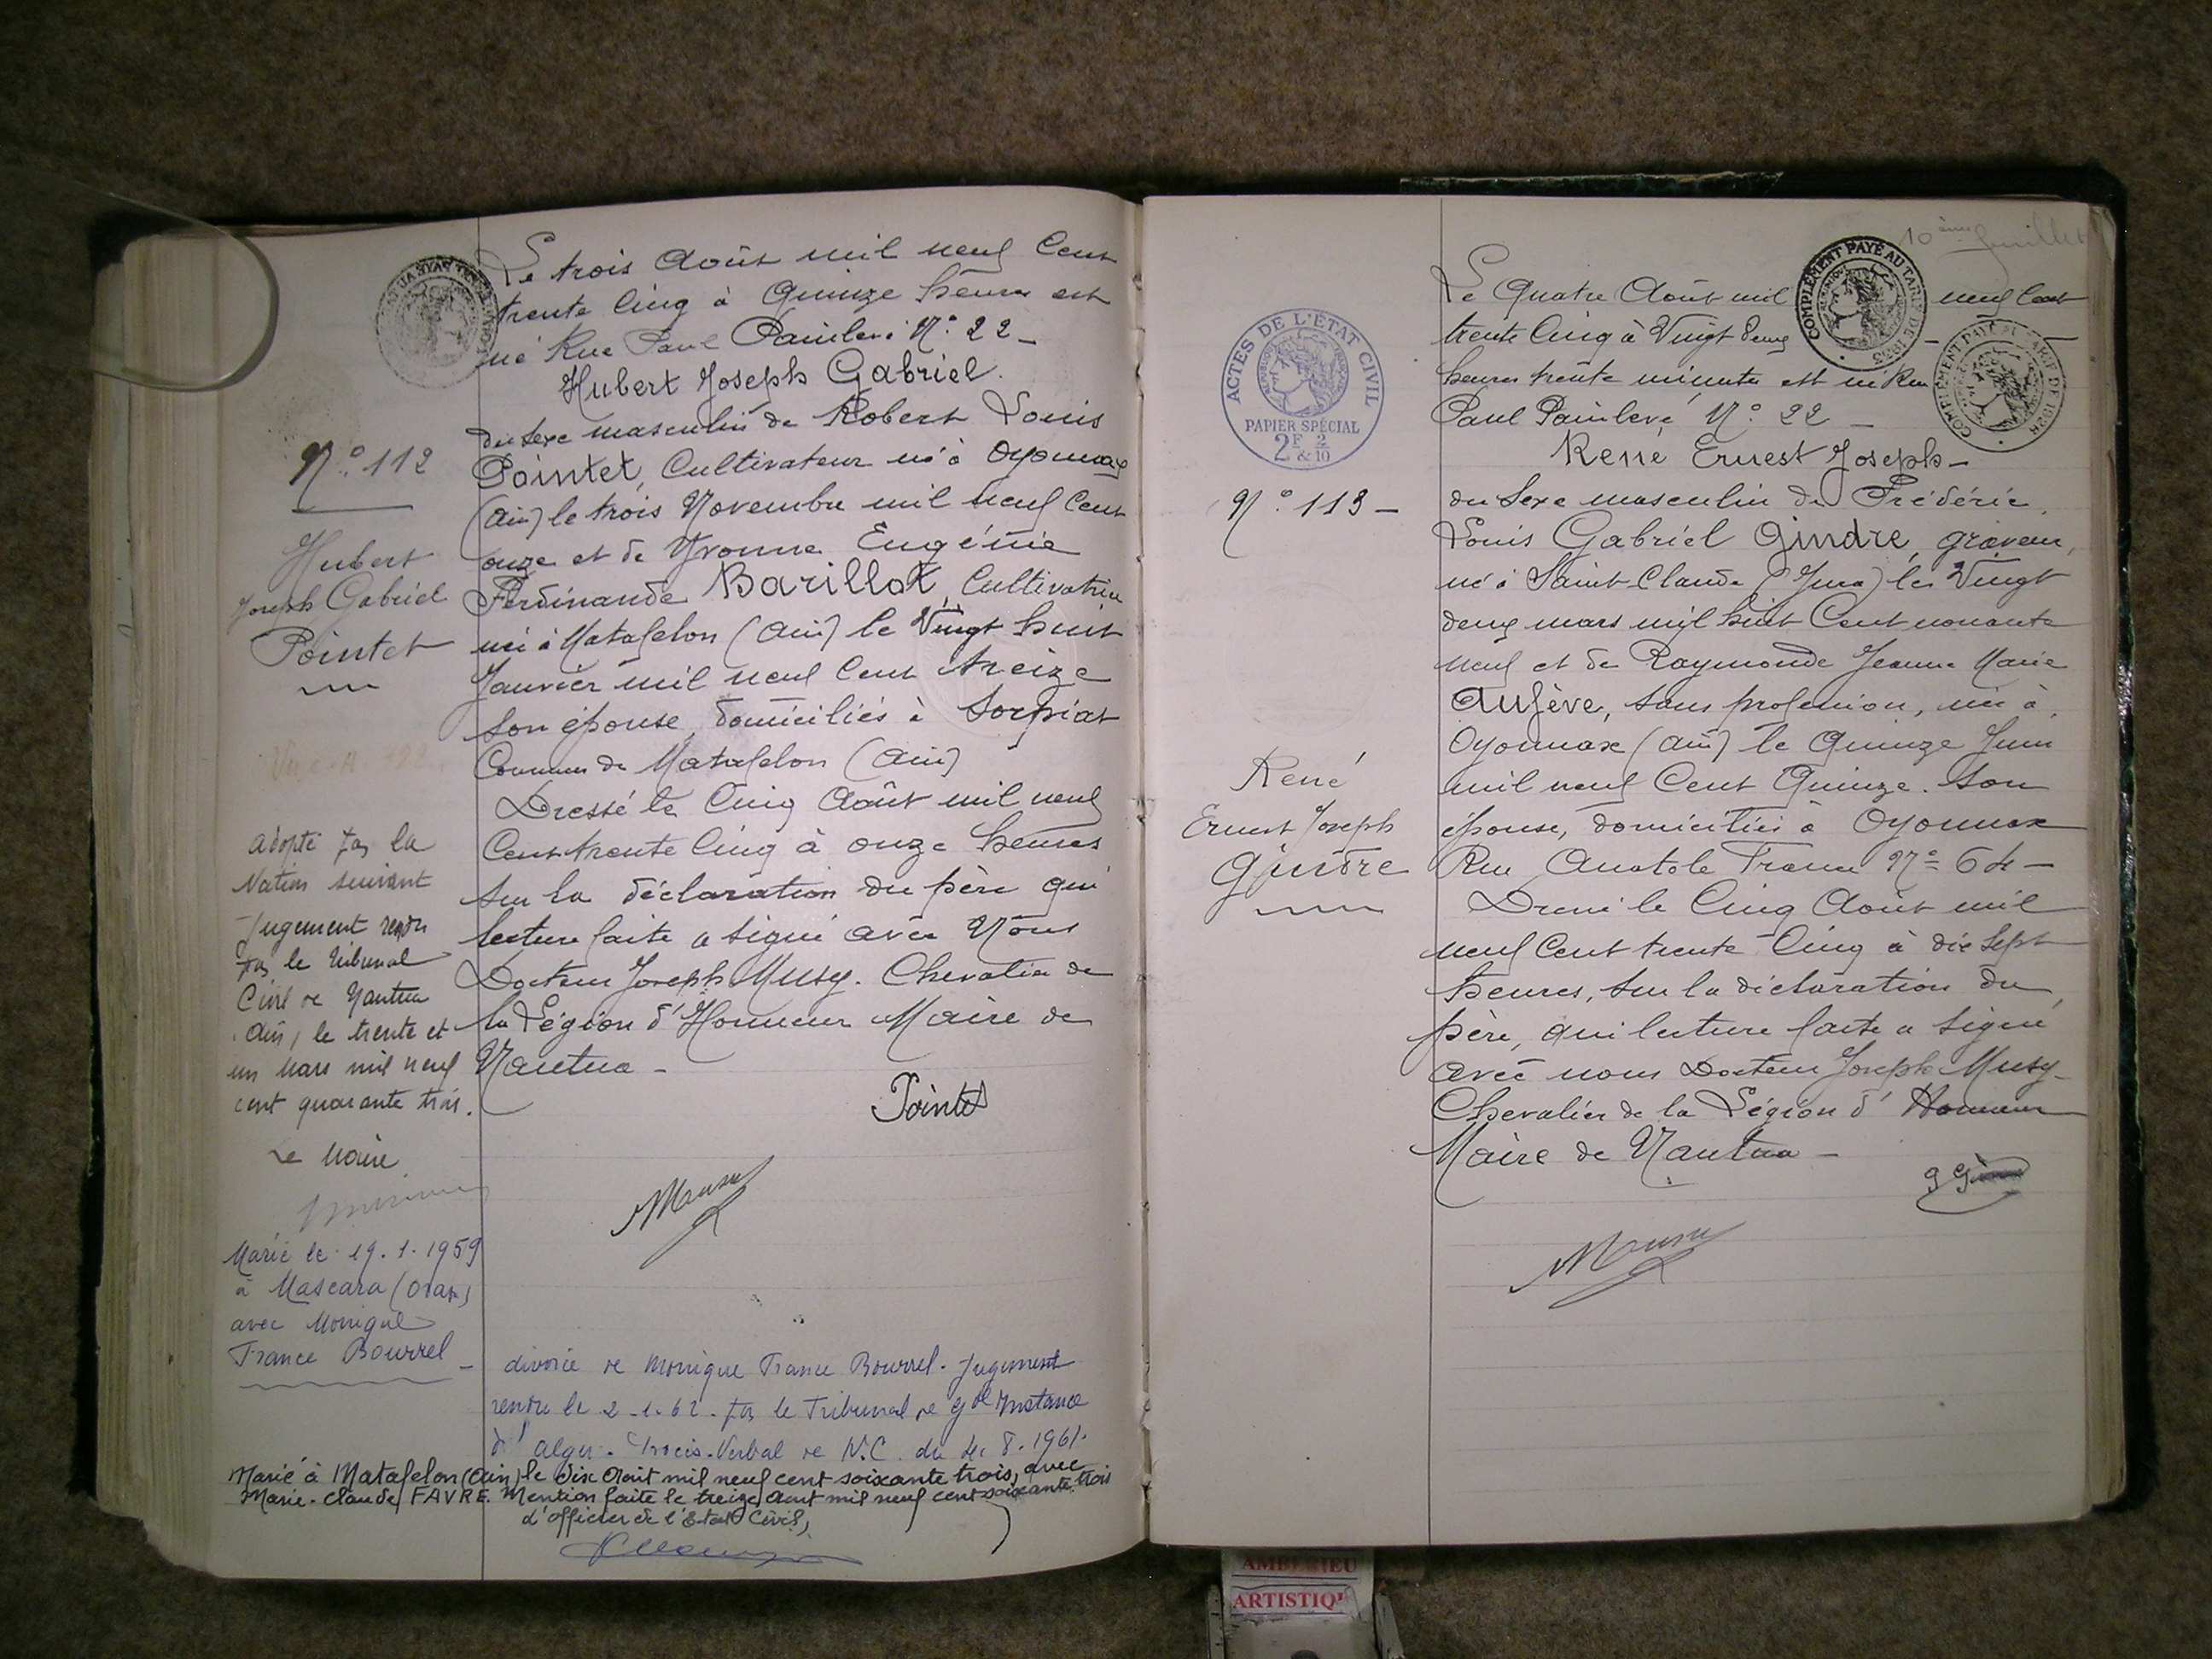 Le trois Août mil neuf Cent
trente Cinq à Quinze heures est
né Rue Paul Painlevé N° 22 -
Hubert Joseph Gabriel.
du sexe masculin de Robert Louis
Pointet, Cultivateur né à Oyonnax
(Ain) le trois Novembre mil neuf Cent
onze et de Yvonne Eugénie
Ferdinande Barillot, Cultivatrice
née à Matafelon (Ain) le Vingt huit
Janvier mil neuf Cent treize
son épouse, domiciliés à Sorpiat
Commune de Matafelon (Ain)
Dressé le Cinq Août mil neuf
Cent trente Cinq à onze heures
sur la déclaration du père qui
lecture faite a signé avec Nous
Docteur Joseph Musy. Chevalier de
la Légion d'Honneur Maire de
Nantua -
Pointet
Musy
N° 112
Hubert
Joseph Gabriel
Pointet
adopté par la
Nation suivant
Jugement rendu
par le Tribunal
Civil de Nantua
(Ain) le trente et
un Mars mil neuf
cent quarante trois.
Le Maire
Marié le 19.1.1959
à Mascara (Oran)
avec Monique
France Bourrel -
divorcé de Monique France Bourrel. Jugement
rendu le 2-1-62. par le Tribunal de gde Instance
d'Alger. Procès-Verbal de N.C. du 4.8.1961.
Marié à Matafelon (Ain) le dix Août mil neuf cent soixante trois, avec
Marie-Claude FAVRE. Mention faite le treize Août mil neuf cent soixante trois
d'officier de l'Etat Civil,
10ème feuillet
COMPLÉMENT PAYÉ AU TARIF DE 1933
COMPLÉMENT PAYÉ AU TARIF DE 1928
ACTES DE L'ÉTAT CIVIL
PAPIER SPÉCIAL
2F 2
& 10
N° 113 -
René
Ernest Joseph
Gindre
Le Quatre Août mil neuf Cent
trente Cinq à Vingt deux
heures trente minutes est né Rue
Paul Painlevé, N° 22 -
René Ernest Joseph -
du sexe masculin de Frédéric,
Louis Gabriel Gindre, graveur,
né à Saint-Claude (Jura) le Vingt
deux mars mil huit Cent nonante
neuf et de Raymonde Jeanne Marie
Aufève, sans profession, née à
Oyonnax (Ain) le Quinze Juin
mil neuf Cent Quinze. son
épouse, domiciliés à Oyonnax
Rue Anatole France N° 64 -
Dressé le Cinq Août mil
neuf Cent trente Cinq à dix sept
heures, sur la déclaration du
père, qui lecture faite a signé
avec nous Docteur Joseph Musy -
Chevalier de la Légion d'Honneur
Maire de Nantua -
Musy
AMBERIEU
ARTISTIQU